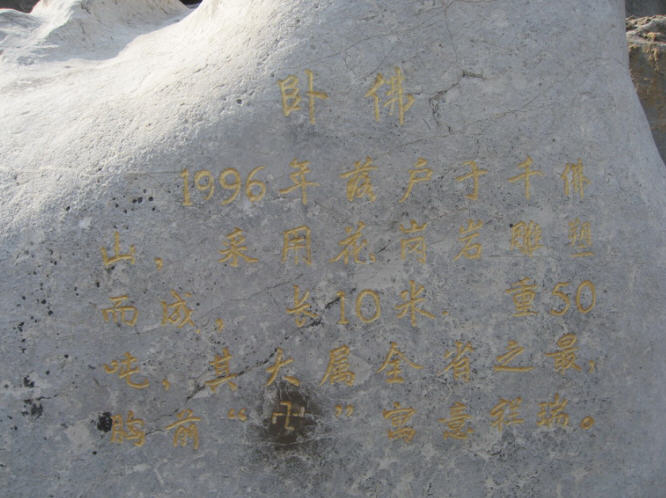 卧佛
1996年落户于千佛
山，采用花岗岩雕塑
而成，长10米，重50
吨，其大属全省之最，
胸前“卍”寓意祥瑞。